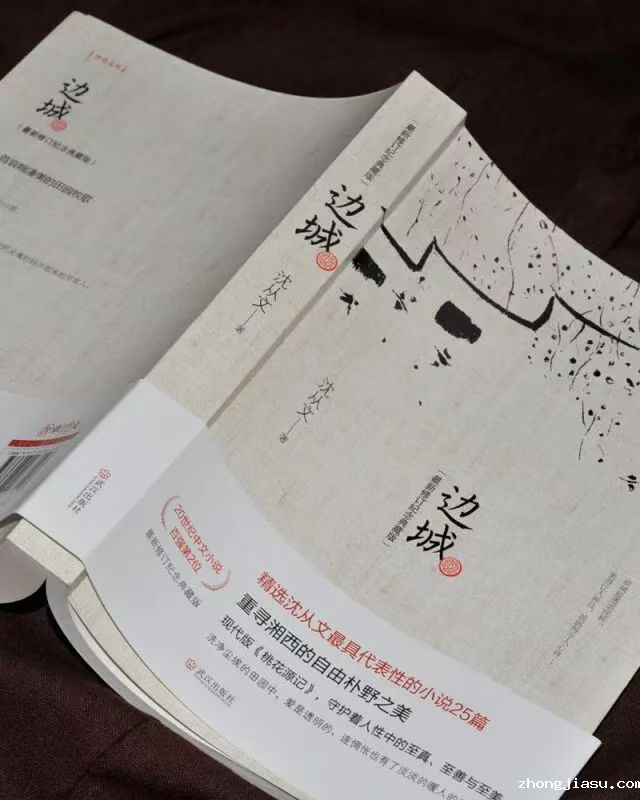 边城
（最新修订纪念典藏版）
最新修订纪念典藏版
边城
沈从文 著
武汉出版社
沈从文 著
边城
最新修订纪念典藏版
20世纪中文小说
百强第2位
最新修订纪念典藏版
精选沈从文最具代表性的小说25篇
重寻湘西的自由朴野之美
现代版《桃花源记》，守护着人性中的至真、至善与至美
洗净尘埃的田园中，爱是透明的，连惆怅也有了淡淡的暖人的
武汉出版社
zhongjiasu.com